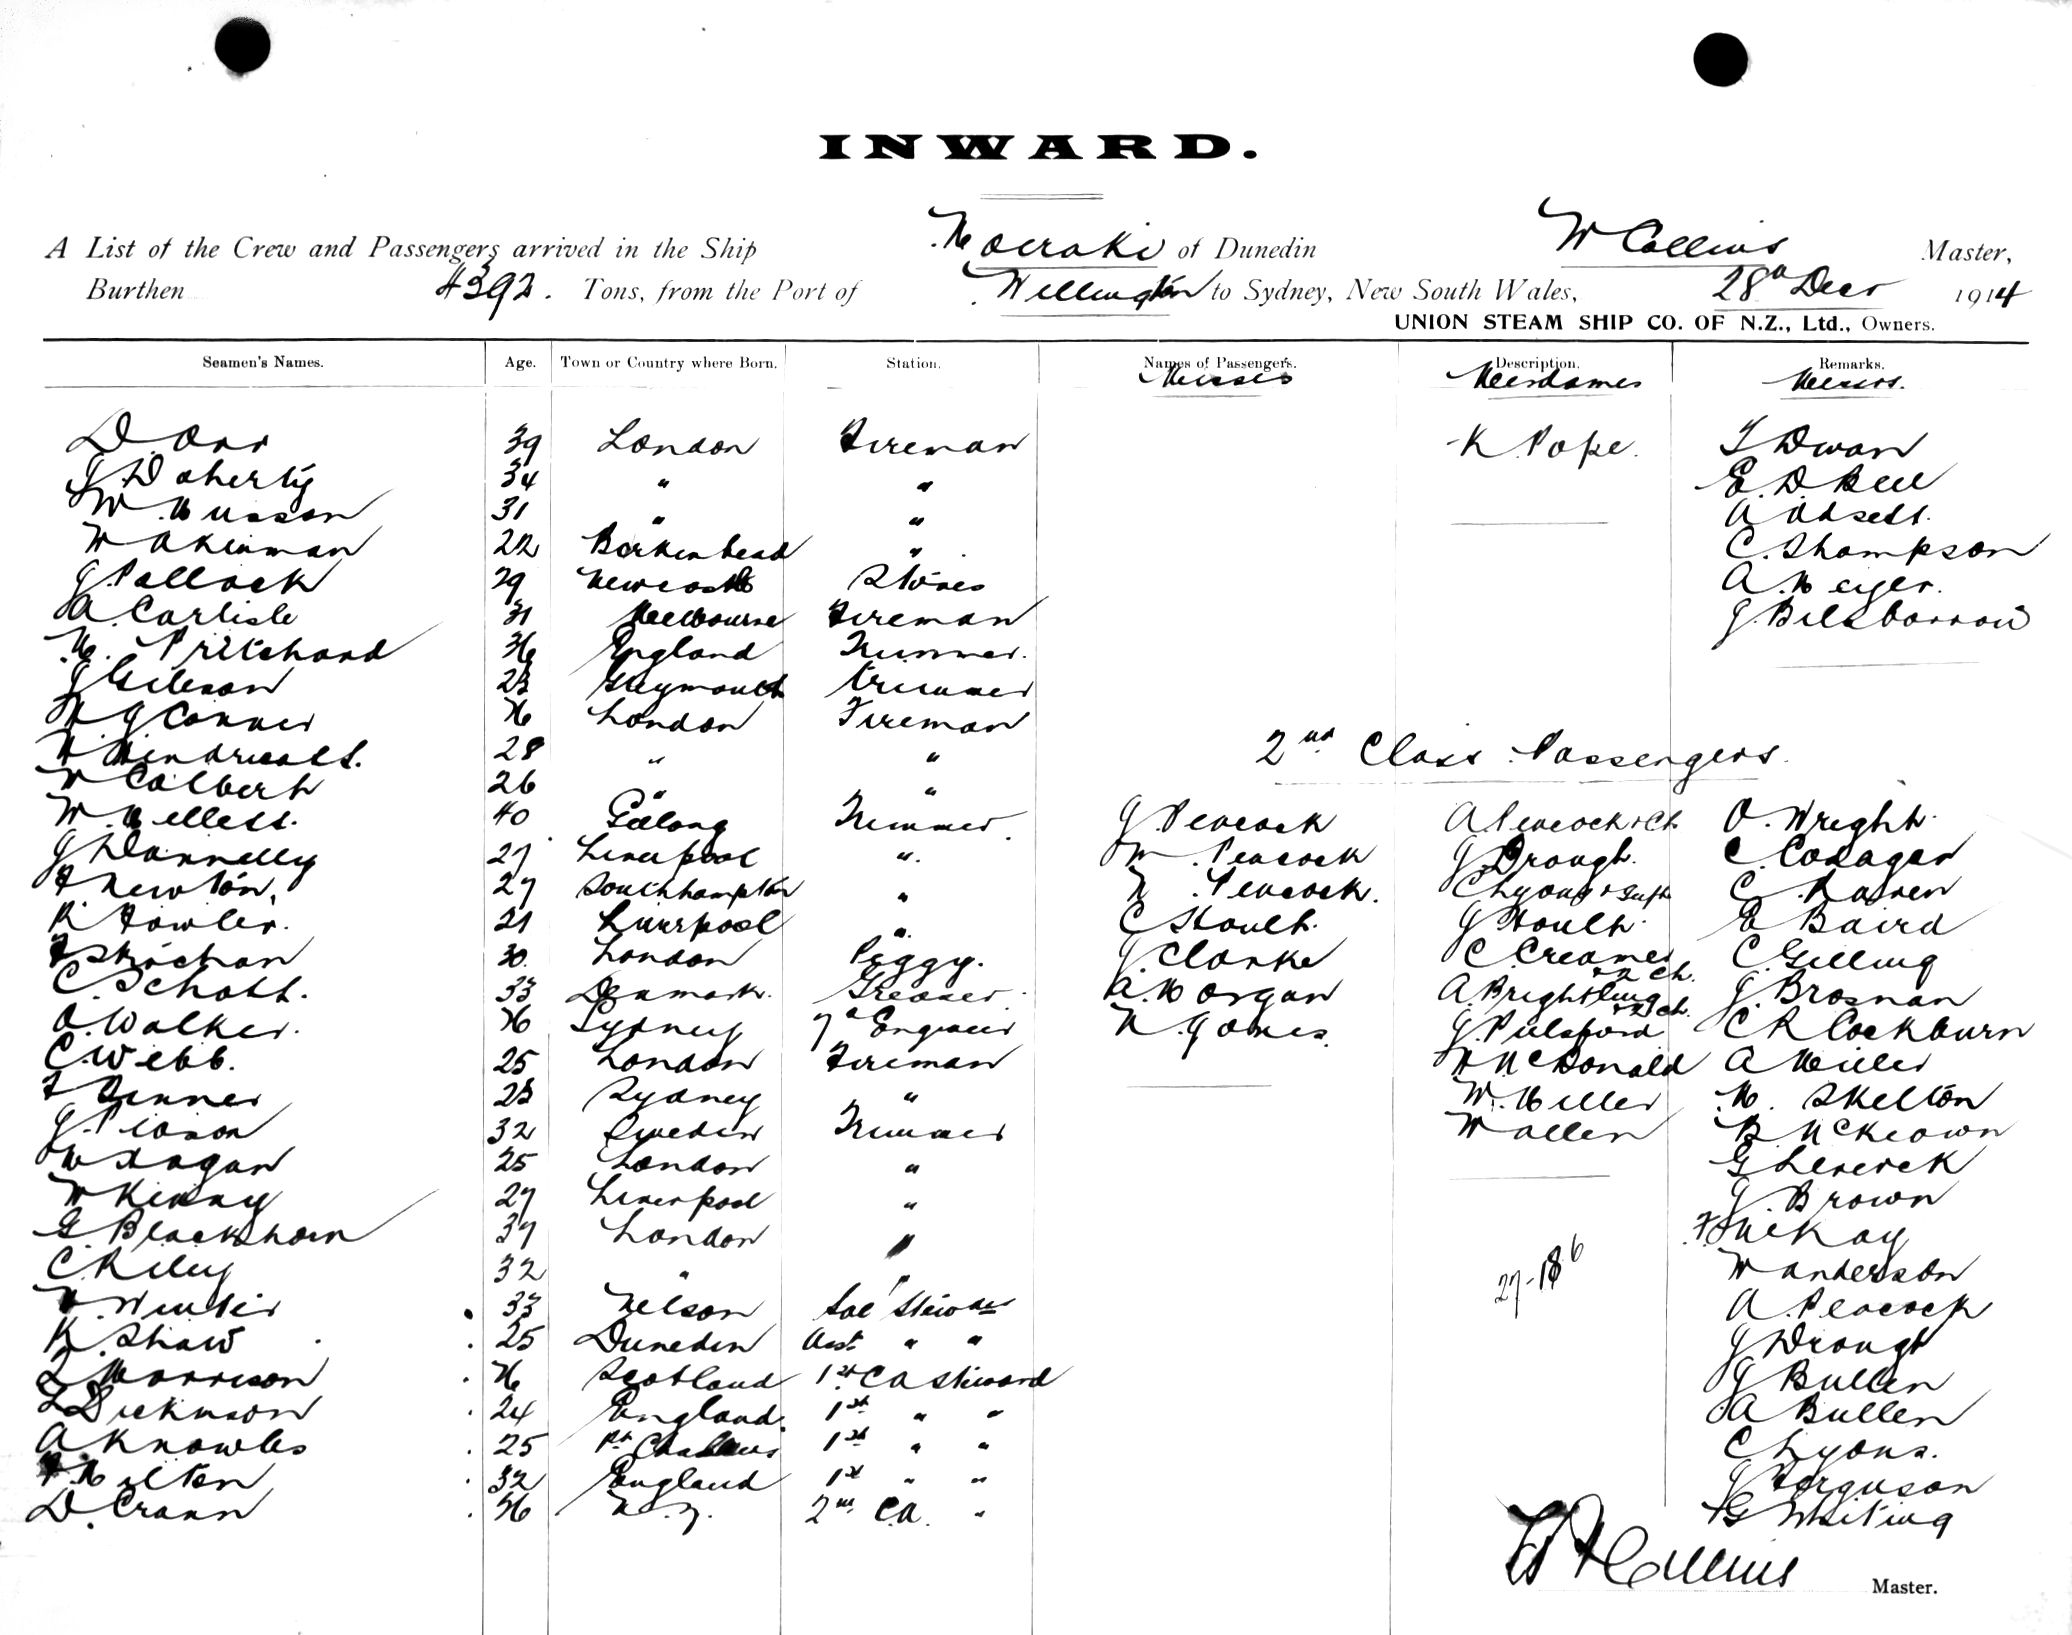 INWARD.
A List of the Crew and Passengers arrived in the Ship Moeraki of Dunedin W Collins Master,
Burthen 4392. Tons, from the Port of Wellington to Sydney, New South Wales, 28th Decr 1914
UNION STEAM SHIP CO. OF N.Z., Ltd., Owners.
Seamen's Names. Age. Town or Country where Born. Station. Names of Passengers. Description. Remarks.
Misses Mesdames Messrs.
D. Orr 39 London Fireman K Pope. T Dwan
J Doherty 34 " " E. D. Bell
W. Musson 31 " " A
W Akerman 22 Birkenhead " C. Thompson
G Pollock 29 Newcastle Stores A. Meijer.
A. Carlisle 31 Melbourne Fireman J. Bilsborrow
M. Pritchard 36 England Trimmer.
J Gibson 23 Greymouth Trimmer
J Connor 26 London Fireman
28 " "
2nd Class Passengers.
W Colbert 26 " "
W. Melless. 40 Geelong Trimmer. J. Peacock A. Peacock + Ch O. Wright.
J Donnelly 27 Liverpool ". M. Peacock J Drough. C. Cadagan
F Newton, 27 Southhampton " N. Peacock. C Lyons + Inft C. Raven
R Fowler. 21 Liverpool ". C Hoult. J Hoult. E Baird
F Strachan 30. London Peggy. J. Clarke C. Creamer + 2 ch. C. Gilling
C. Schott. 33 Denmark. Greaser. A. Morgan A. Brightling + 2 ch. J. Brosnan
A. Walker. 26 Sydney 7th Engineer N. Jones. J. Pulsford C R Cockburn
C. Webb. 25 London Fireman McDonald A Miller
F Jenner 23 Sydney " W. Miller M. Skelton
J. Pearson 32 Sweden Trimmer W Allen R McKeown
W Hagan 25 London " G Leverek
W Kenny 27 Liverpool " J. Brown
G. Blackhorn 37 London " F. McKay
C Riley 32 " " 27-18 6 W Anderson
Winter 33 Nelson Sal Stewdss A. Peacock
K. Shaw 25 Dunedin Asst " " J Drough
L Morrison 26 Scotland 1st CA Steward J Bullen
L Dickinson 24 England. 1st " " A Bullen
A Knowles 25 Pt Chalmers 1st " " C Lyons.
Milton 32 England 1st " " J Ferguson
D. Crann 26 N.Z. 2nd C.A. " G Whiting
W Collins
Master.